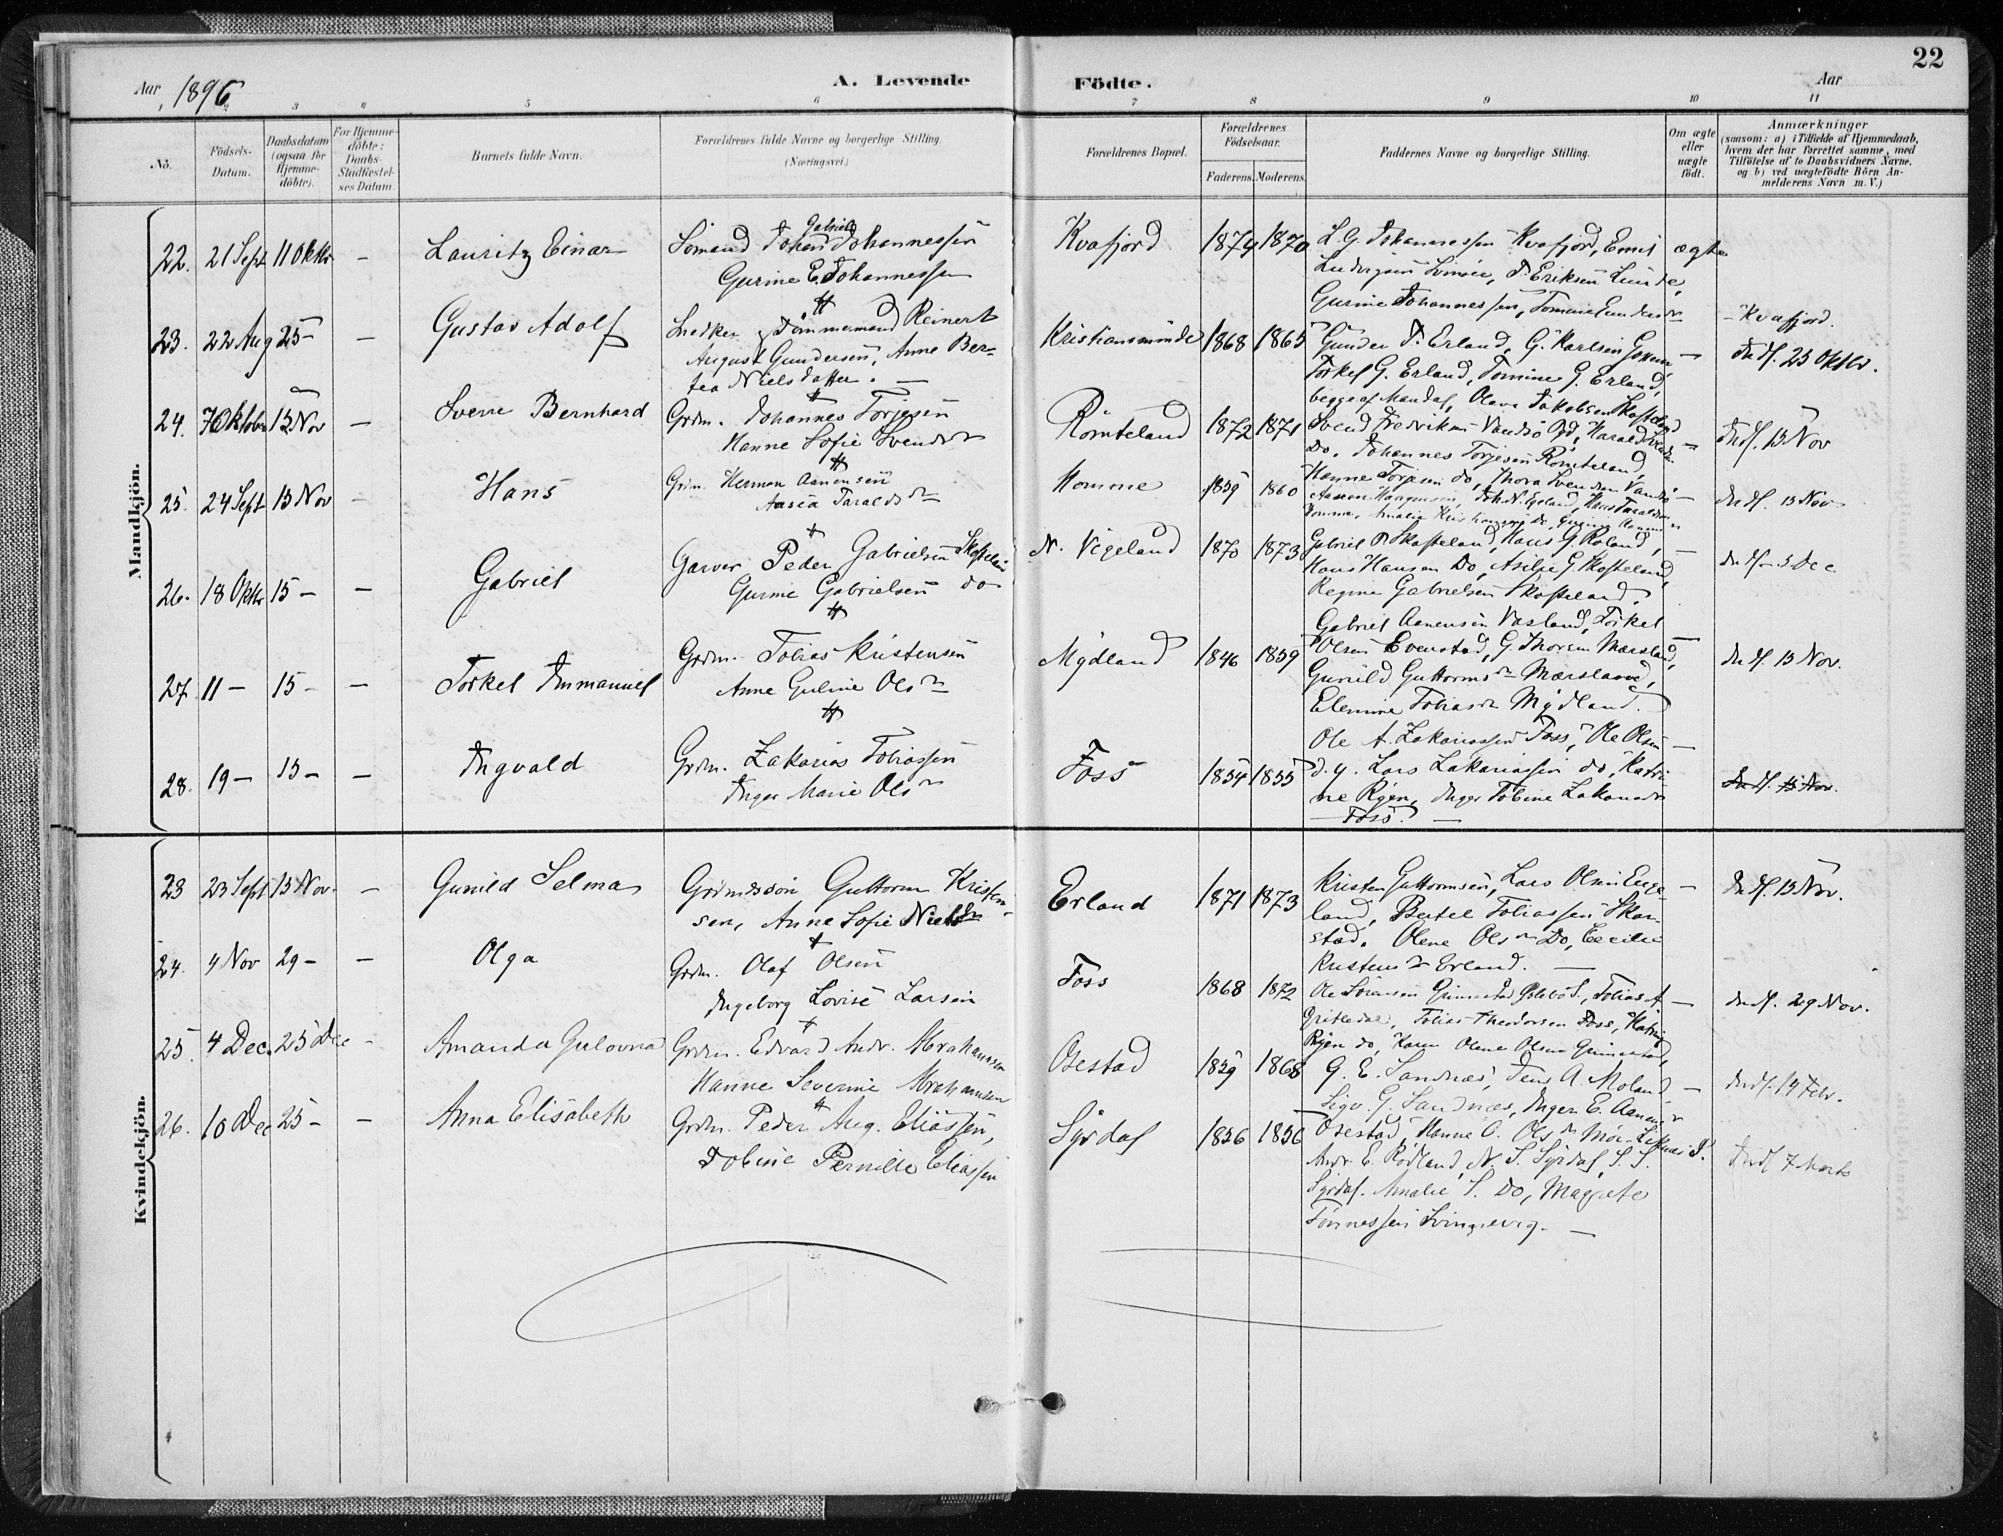 22
Aar 1896
A. Levende Födte.
Aar
3 4 5 6 7 8 9 10 11
No. Födsels-Datum. Daabsdatum (ogsaa for Hjemmedöbte). For Hjemmedöbte: Daabs-Stadfæstelses Datum. Barnets fulde Navn. Forældrenes fulde Navne og borgerlige Stilling. (Næringsvei.) Forældrenes Bopæl. Forældrenes Födselsaar. Faderens. Moderens. Faddernes Navne og borgerlige Stilling. Om ægte eller uægte födt. Anmærkninger (saasom: a) i Tilfælde af Hjemmedaab, hvem der har forrettet samme, med Tilföielse af to Daabsvidners Navne. og b) ved uægtefödte Börn Anmelderens Navn m. V.)
Mandkjön.
22. 21 Sept 11 Oktbr — Lauritz Einar Sömand Johan Gabriel Johannessen
Gurine E. Johannessen
Kvafjord 1874 1870 L. G. Johannessen Kvafjord, Emil ægte
Ludvigsen Svinöer, T. Eriksen Lunde,
Gurine Johannessen,
— Kvafjord.
23. 22 Aug 25 — — Gustav Adolf Snedker & Tömmermand Reinert
August Gundersen, Anne Ber-
tea Nielsdatter. —
Kristianminde 1868 1865 Gunder T. Erland, G. Karlsen —
Torkel G. Erland, Tomine G. Erland,
begge af Mandal, Olava Jakobsen Skofteland
Indf. 25 Oktbr.
24. 7 Oktober 15 Nov — Sverre Bernhard Grdm. Johannes Torjesen
Hanne Sofie Svendsdr
Römteland 1872 1871 Svend Fredriksen Vandsö, Harald —
Do. Johannes Torjesen Römteland,
Hanne Torjesen do, Thora Svendsen Vandsö
Indf. 15 Nov
25. 24 Sept 15 Nov — Hans Grdm. Herman Aanensen
Aasea Taraldsdr
Homme 1859 1860
Indf. 15 Nov
26. 18 Oktbr 15 — — Gabriel Garver Peder Gabrielsen Skofteland
Gurine Gabrielsen do
N. Vigeland 1870 1873 Gabriel P. Skofteland, Hans G. Roland, —
Hans Hansen Do, Asilie G. Skofteland,
Regine Gabrielsen Skofteland.
Indf — 5 Dec
27. 11 — 15 — — Torkel Immanuel Grdm. Tobias Kristensen
Anne Guline Olsdr
Mydland 1846 1859 Gabriel Aanensen Vasland, Torkel
Olsen Evenstad, G. Thorsen Mærsland, —
Gunild Guttormsdr Mærsland,
Elenine Tobiasdr Mydland.
Indf. 15 Nov.
28. 19 — 15 — — Ingvald Grdm. Zakarias Tobiassen
Inger Marie Olsdr
Foss 1854 1855 Ole A. Zakariassen Foss, Ole Olsen —
d. y. Lars Zakariassen do, Katri-
ne Röjen, Inger Tobine Zakariasdr
— Foss. —
Indf. 15 Nov.
Kvindekjön.
23 23 Sept 15 Nov. — Gunild Selma Grdmdssön Guttorm Kristen-
sen, Anne Sofie Nielsdr
Erland 1871 1873 Kristen Guttormsen, Lars Olsen Eige- —
land, Bertel Tobiassen Skar-
stad. Olene Olsdr Do, Cecilie
Kristensdr Erland. —
Indf. 15 Nov.
24. 4 Nov 29 — — Olga Grdm. Olaf Olsen
Ingeborg Lovise Larsen
Foss 1868 1872 Ole Sörensen Tobias A —
Tobias Theodorsen Foss, Katrine
Röjen do, Karen Olene Olsen
Indf. 29 Nov.
25. 4 Dec. 25 Dec — Amanda Gulovna Grdm. Edvard Andr. Abrahamsen
Hanne Severine Abrahamsen
Osestad 1859 1868 G. E. Sandnæs, Jens A. Moland, —
Sigv. G. Sandnæs, Inger E. Aanensdr
Osestad, Hanne O. Olsdr
Indf. 14 Febr.
26. 10 Dec 25 — — Anna Elisabeth Grdm. Peder Aug. Eliassen,
Tobine Pernille Eliassen
Syrdal 1856 1856
Andr. E. Rödland, N. S. Syrdal, S. S.
Syrdal. Amalie S. Do, Magrete
Tönnessen Svingevig. —
Indf 7 Marts